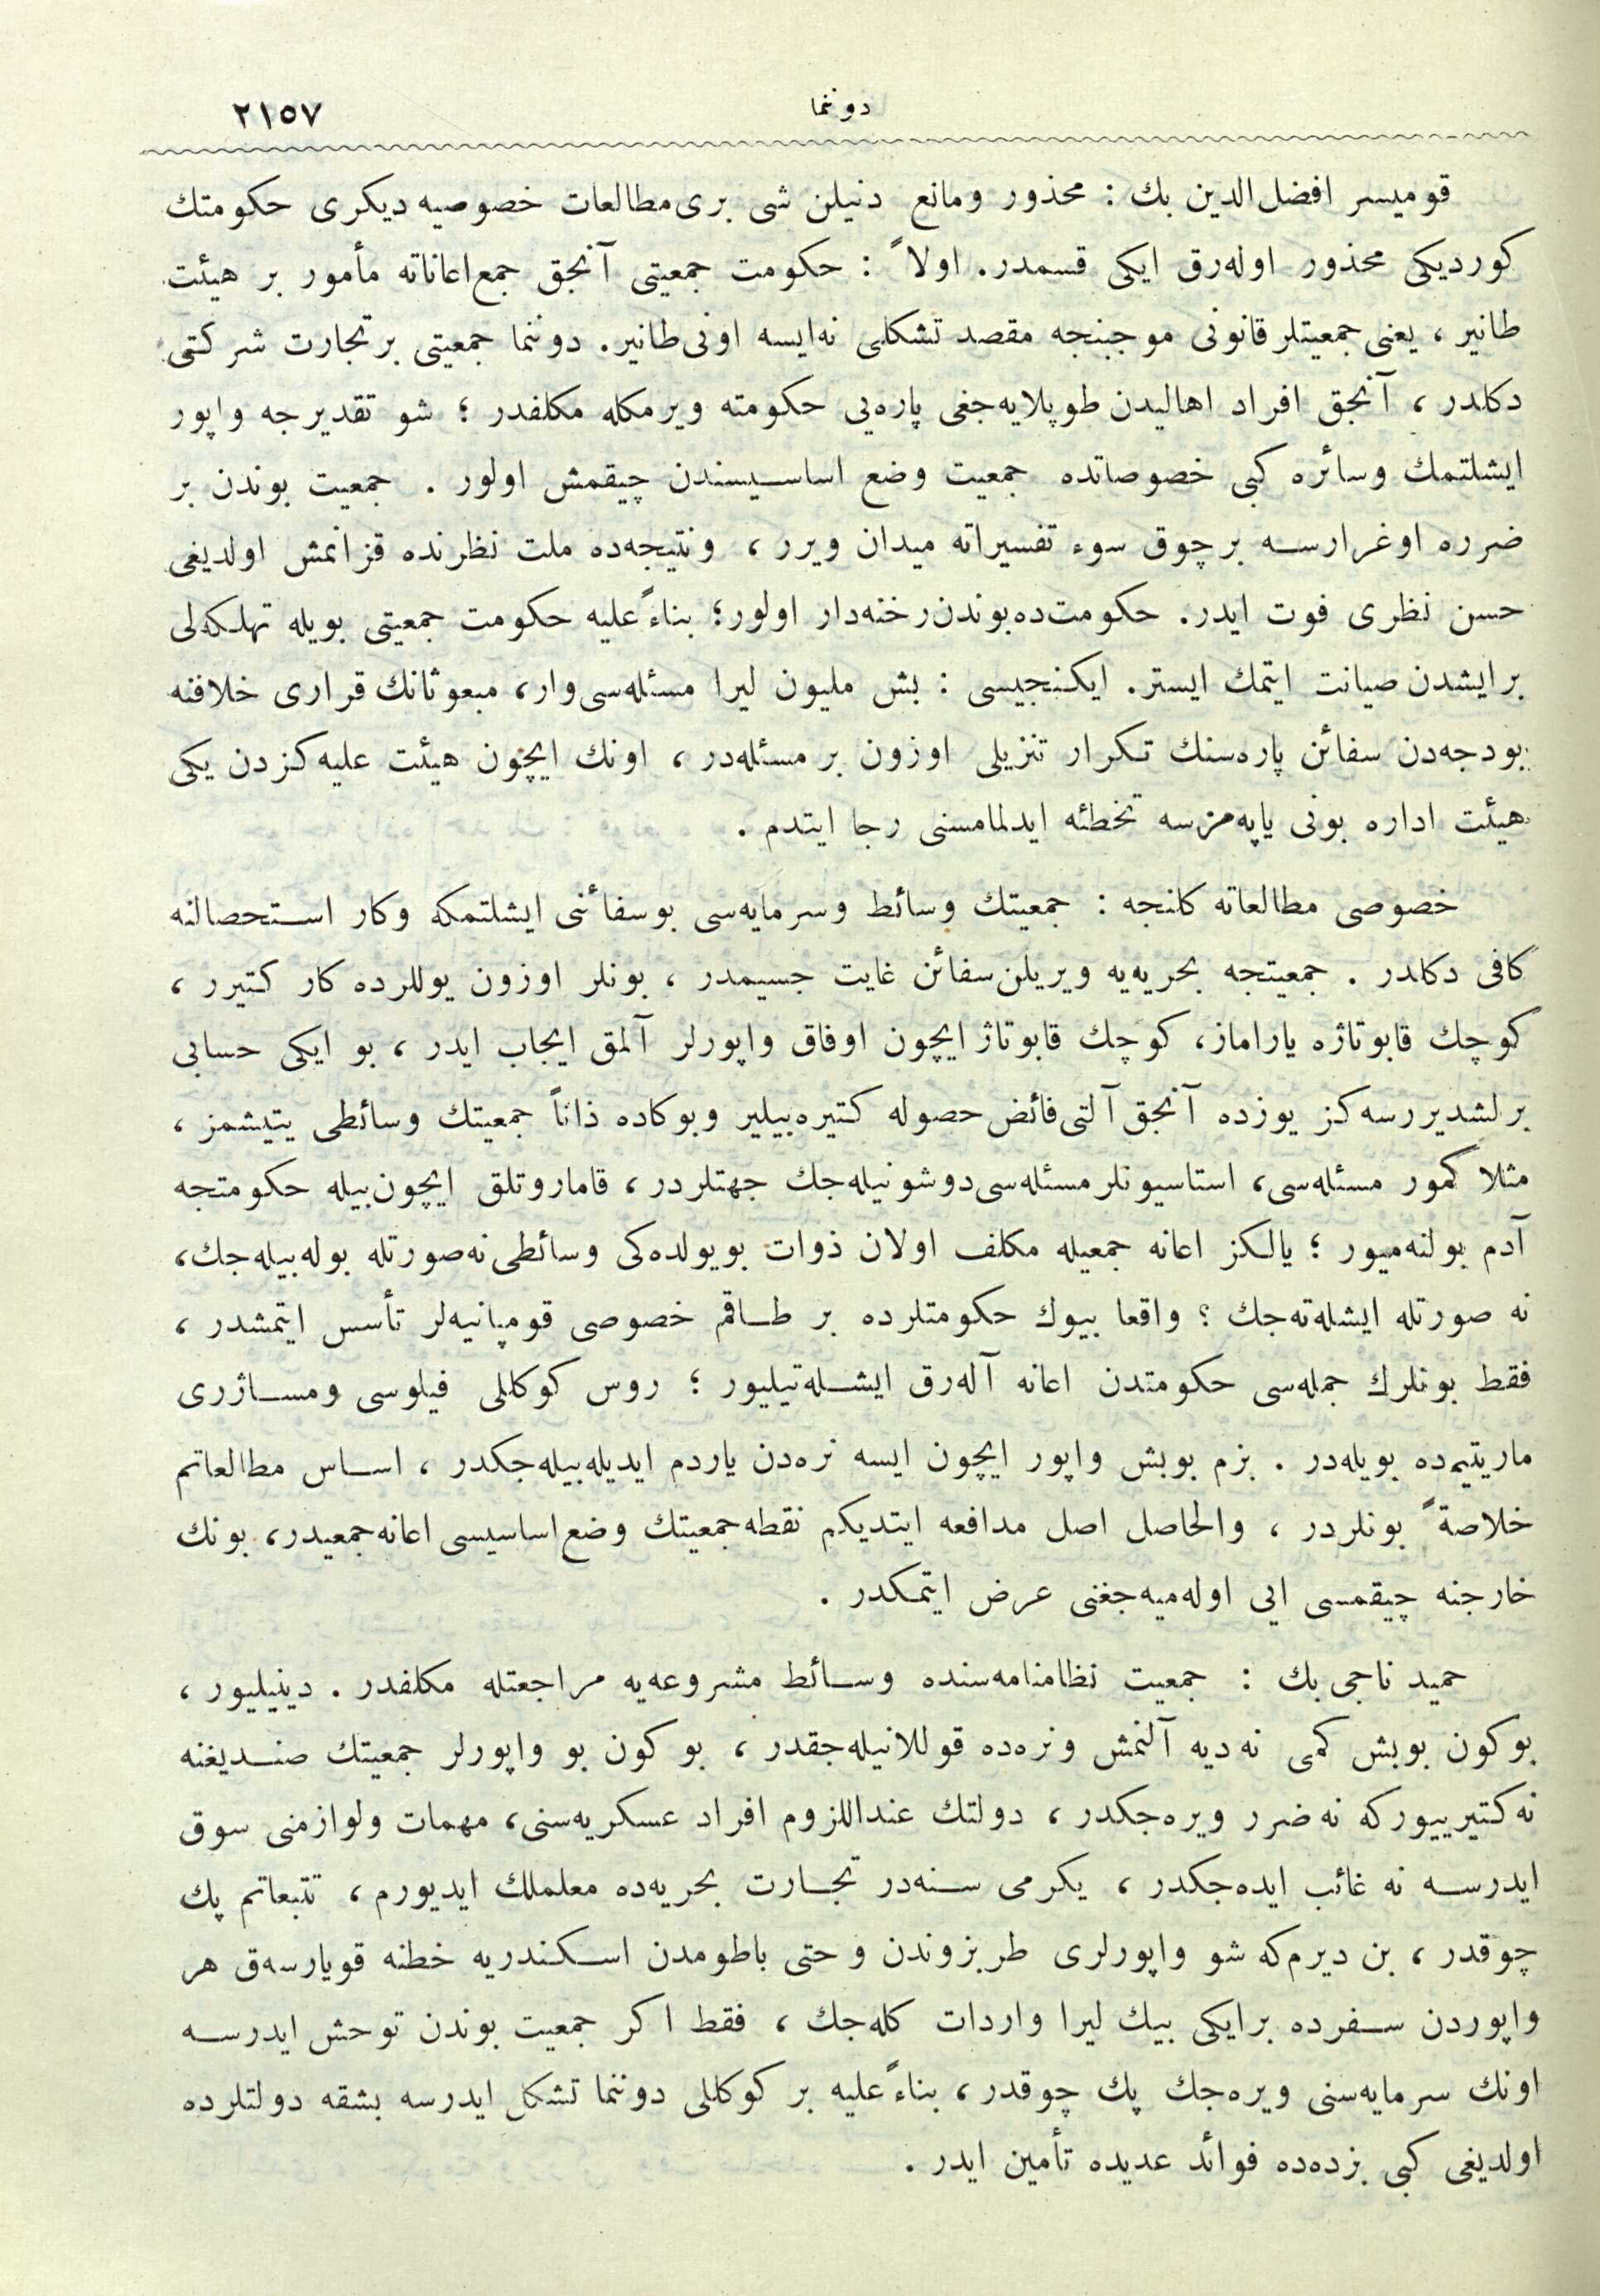 دوننما
٢١٥٧
قوميسر افضل‌الدين بك : محذور ومانع دنيلن شى برى مطالعات خصوصيه ديكرى حكومتك
كورديكى محذور اوله‌رق ايكى قسمدر. اولاً : حكومت جمعيتى آنجق جمع‌اعاناته مأمور بر هيئت
طانير ، يعنى جمعيتلر قانونى موجبنجه مقصد تشكلى نه‌ايسه اونى طانير. دوننما جمعيتى بر تجارت شركتى
دكلدر ، آنجق افراد اهاليدن طوپلايه‌جغى پاره‌يى حكومته ويرمكله مكلفدر ؛ شو تقديرجه واپور
ايشلتمك وسائره كبى خصوصاتده جمعيت وضع اساسيسندن چيقمش اولور . جمعيت بوندن بر
ضرره اوغرارسه برچوق سوء تفسيراته ميدان ويرر ، ونتيجه‌ده ملت نظرنده قزانمش اولديغى
حسن نظرى فوت ايدر. حكومت‌ده بوندن رخنه‌دار اولور؛ بناءً عليه حكومت جمعيتى بويله تهلكه‌لى
بر ايشدن صيانت ايتمك ايستر. ايكنجيسى : بش مليون ليرا مسئله‌سى وار، مبعوثانك قرارى خلافنه
بودجه‌دن سفائن پاره‌سنك تكرار تنزيلى اوزون بر مسئله‌در ، اونك ايچون هيئت عليه‌كزدن يكى
هيئت اداره بونى ياپه‌مزسه تخطئه ايدلمامسنى رجا ايتدم .
خصوصى مطالعاته كلنجه : جمعيتك وسائط وسرمايه‌سى بوسفائنى ايشلتمكه وكار استحصالنه
كافى دكلدر . جمعيتجه بحريه‌يه ويريلن سفائن غايت جسيمدر ، بونلر اوزون يوللرده كار كتيرر ،
كوچك قابوتاژه ياراماز، كوچك قابوتاژ ايچون اوفاق واپورلر آلمق ايجاب ايدر ، بو ايكى حسابى
برلشديررسه‌كز يوزده آنجق آلتى فائض حصوله كتيره‌بيلير وبوكاده ذاتاً جمعيتك وسائطى يتيشمز ،
مثلا كمور مسئله‌سى، استاسيونلر مسئله‌سى دوشونيله‌جك جهتلردر ، قاماروتلق ايچون بيله حكومتجه
آدم بولنه‌ميور ؛ يالكز اعانه جمعيله مكلف اولان ذوات بويولده‌كى وسائطى نه‌صورتله بوله‌بيله‌جك،
نه صورتله ايشله‌ته‌جك ؟ واقعا بيوك حكومتلرده بر طاقم خصوصى قومپانيه‌لر تأسس ايتمشدر ،
فقط بونلرك جمله‌سى حكومتدن اعانه آله‌رق ايشله‌تيليور ؛ روس كوكللى فيلوسى ومساژرى
ماريتيم‌ده بويله‌در . بزم بوبش واپور ايچون ايسه نره‌دن ياردم ايديله‌بيله‌جكدر ، اساس مطالعاتم
خلاصةً بونلردر ، والحاصل اصل مدافعه ايتديكم نقطه جمعيتك وضع‌اساسيسى اعانه‌جمعيدر، بونك
خارجنه چيقمسى ايى اوله‌ميه‌جغنى عرض ايتمكدر .
حميد ناجى بك : جمعيت نظامنامه‌سنده وسائط مشروعه‌يه مراجعتله مكلفدر . دينيليور ،
بوكون بوبش كمى نه‌ديه آلنمش ونره‌ده قوللانيله‌جقدر ، بو كون بو واپورلر جمعيتك صنديغنه
نه‌كتيرييوركه نه‌ضرر ويره‌جكدر ، دولتك عنداللزوم افراد عسكريه‌سنى، مهمات ولوازمنى سوق
ايدرسه نه غائب ايده‌جكدر ، يكرمى سنه‌در تجارت بحريه‌ده معلملك ايديورم ، تتبعاتم پك
چوقدر ، بن ديرم‌كه شو واپورلرى طربزوندن وحتى باطومدن اسكندريه خطنه قويارسه‌ق هر
واپوردن سفرده برايكى بيك ليرا واردات كله‌جك ، فقط اكر جمعيت بوندن توحش ايدرسه
اونك سرمايه‌سنى ويره‌جك پك چوقدر ، بناءً عليه بر كوكللى دوننما تشكل ايدرسه بشقه دولتلرده
اولديغى كبى بزده‌ده فوائد عديده تأمين ايدر .